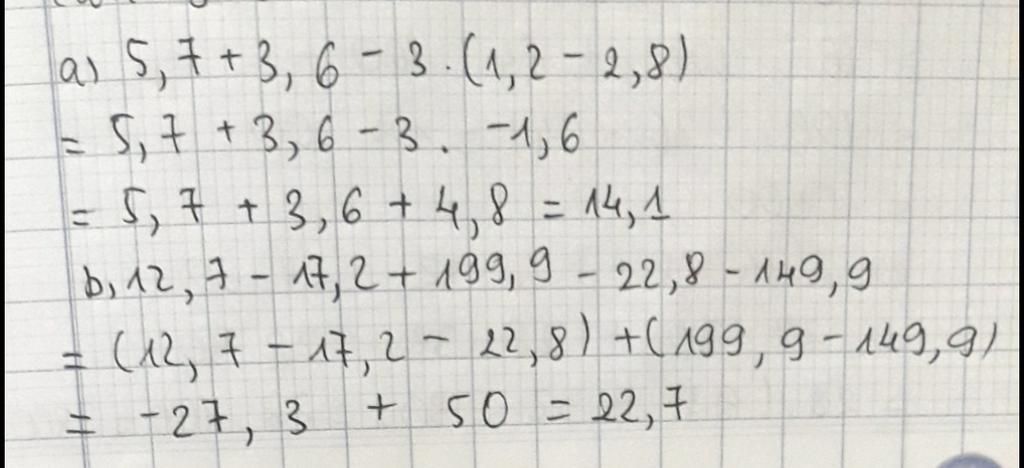 a) 5,7 + 3,6 - 3 . (1,2 - 2,8)
= 5,7 + 3,6 - 3 . -1,6
= 5,7 + 3,6 + 4,8 = 14,1
b, 12,7 - 17,2 + 199,9 - 22,8 - 149,9
= (12,7 - 17,2 - 22,8) + (199,9 - 149,9)
= -27,3 + 50 = 22,7